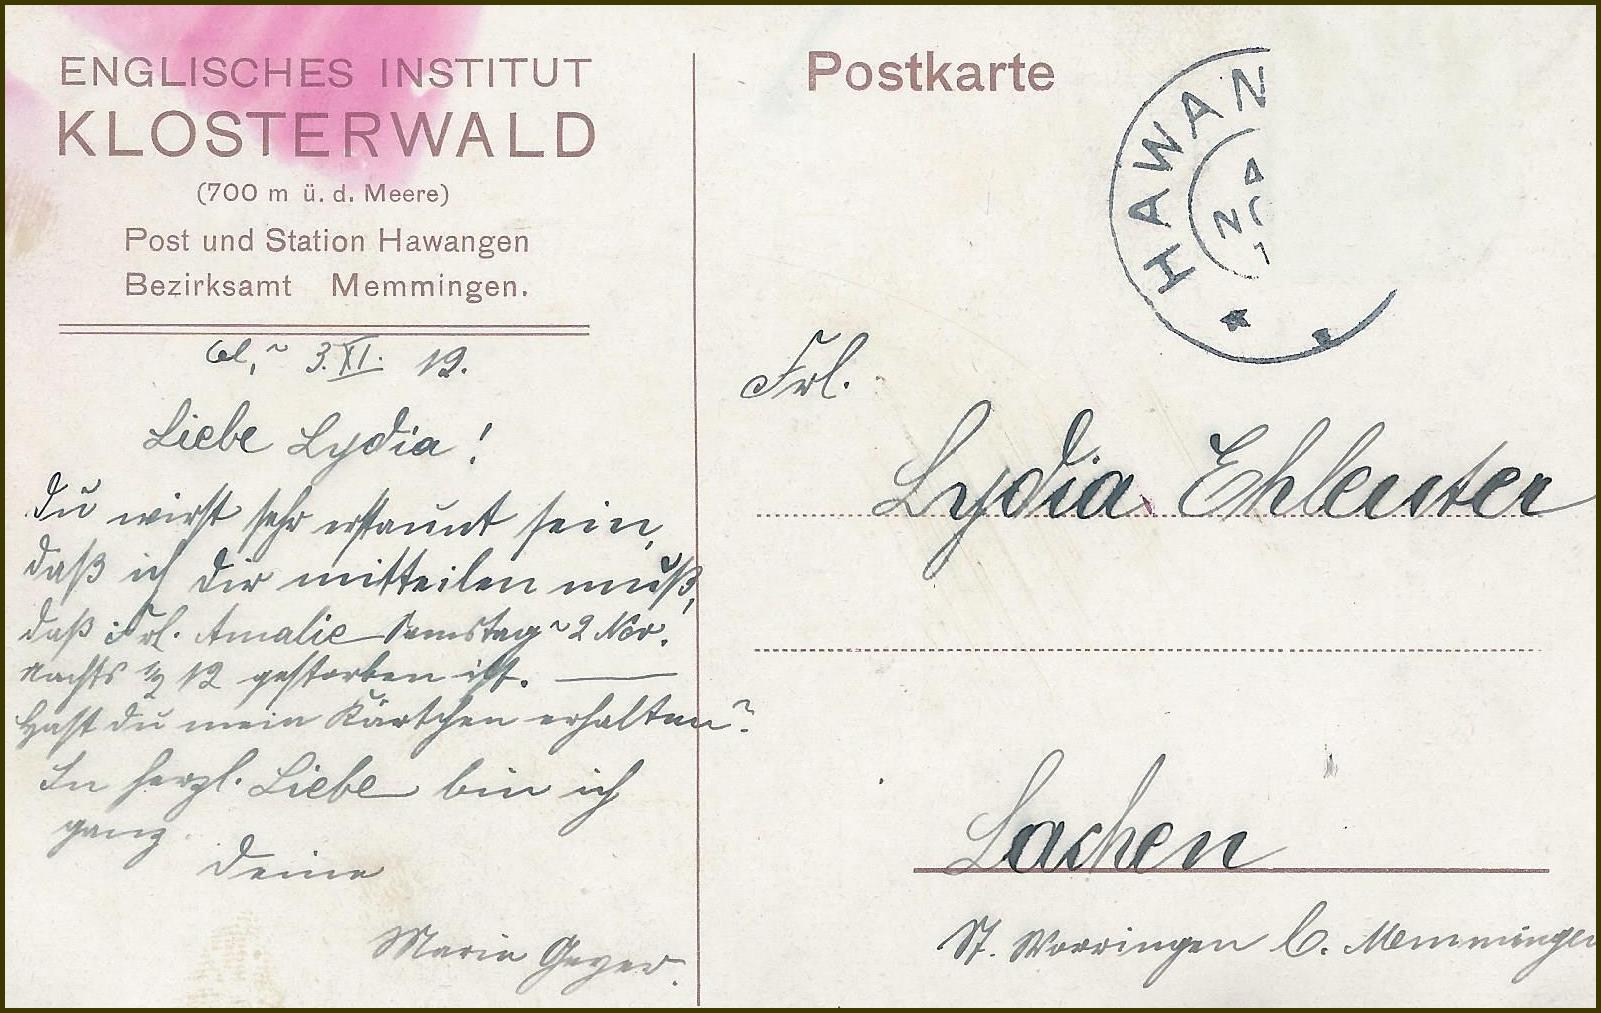 ENGLISCHES INSTITUT
KLOSTERWALD
(700 m ü. d. Meere)
Post und Station Hawangen
Bezirksamt Memmingen.
3. XI. 12.
Liebe Lydia!
Du wirst sehr erstaunt sein,
daß ich Dir mitteilen muß,
daß Frl. Amalie Samstag 2 Nov.
Nachts ½ 12 gestorben ist. —
Hast Du mein Kärtchen erhalten?
In herzl. Liebe bin ich
ganz
Deine
Maria Geyer.
Postkarte
HAWAN
4
NO
1
Frl.
Lydia Ehleuter
Lachen
St. Worringen b. Memmingen